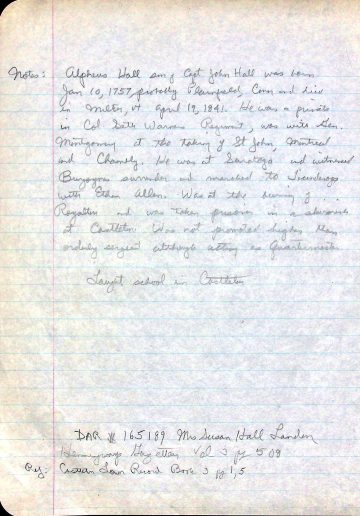 Notes: Alpheus Hall son of Capt John Hall was born
Jan 10, 1757, probably Plainfield, Conn and died
in Milton, Vt April 19, 1841. He was a private
in Col Seth Warner Regiment, was with Gen.
Montgomery at the taking of St John, Montreal
and Chambly. He was at Saratoga and witnessed
Burgoynes surrender and marched to Ticonderoga
with Ethan Allen. Was at the burning of
Royalton and was taken prisoner in a skirmish
at Castleton. Was not promoted higher than
orderly sergeant although acting as Quartermaster
Taught school in Castleton
DAR # 165189 Mrs Susan Hall Landon
Hemenways Gazetteer Vol 3 pg 509
Ref: Town Record Book 3 pg 1,5